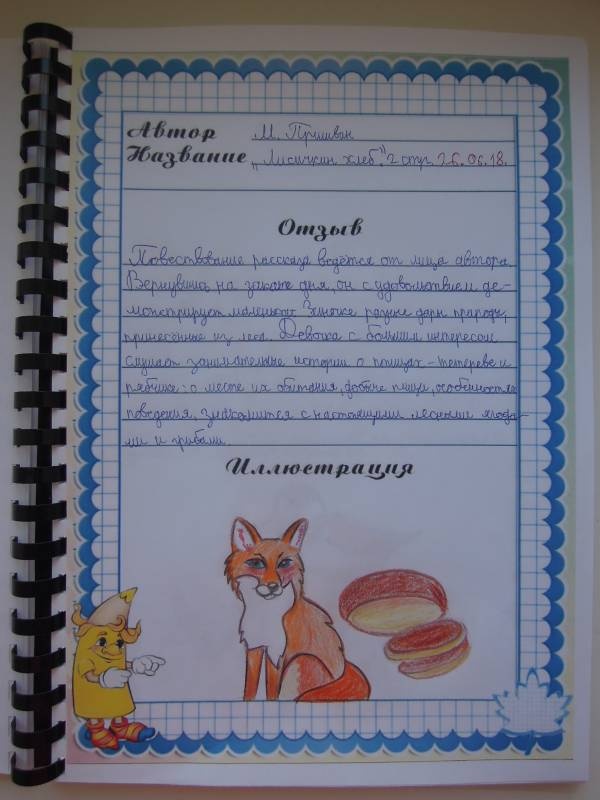 Автор М. Пришвин
Название „Лисичкин хлеб". 2 стр. 26.06.18.
Отзыв
Повествование рассказа ведётся от лица автора.
Вернувшись на закате дня, он с удовольствием де-
монстрирует маленькой Зиночке разные дары природы,
принесенные из леса. Девочка с большим интересом
слушает занимательные истории о птицах - тетереве и
рябчике: о месте их обитания, добыче пищи, особенностях
поведения, знакомится с настоящими лесными ягода-
ми и грибами.
Иллюстрация